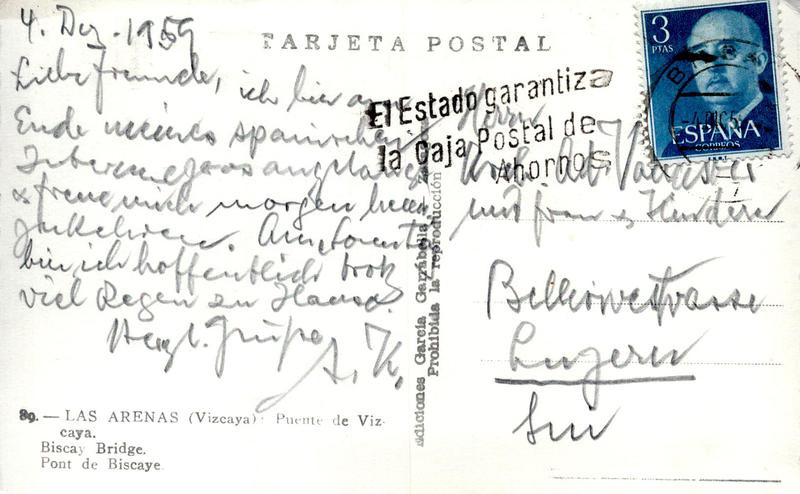 4. Dez. 1959
TARJETA POSTAL
Liebe Freunde, ich bin am
Ende meines spanischen
angelangt
& freue mich morgen heim
zukehren. Am Sonntag
bin ich hoffentlich trotz
viel Regen zu Hause.
Herzl. Grüße
A. K.
El Estado garantiza
la Caja Postal de
Ahorros
3
PTAS
ESPAÑA
CORREOS
Herrn
mit Frau & Kindern
Bellerivestrasse
Luzern
Ediciones García Garrabella
Prohibida la reproducción
89. — LAS ARENAS (Vizcaya): Puente de Viz-
caya.
Biscay Bridge.
Pont de Biscaye